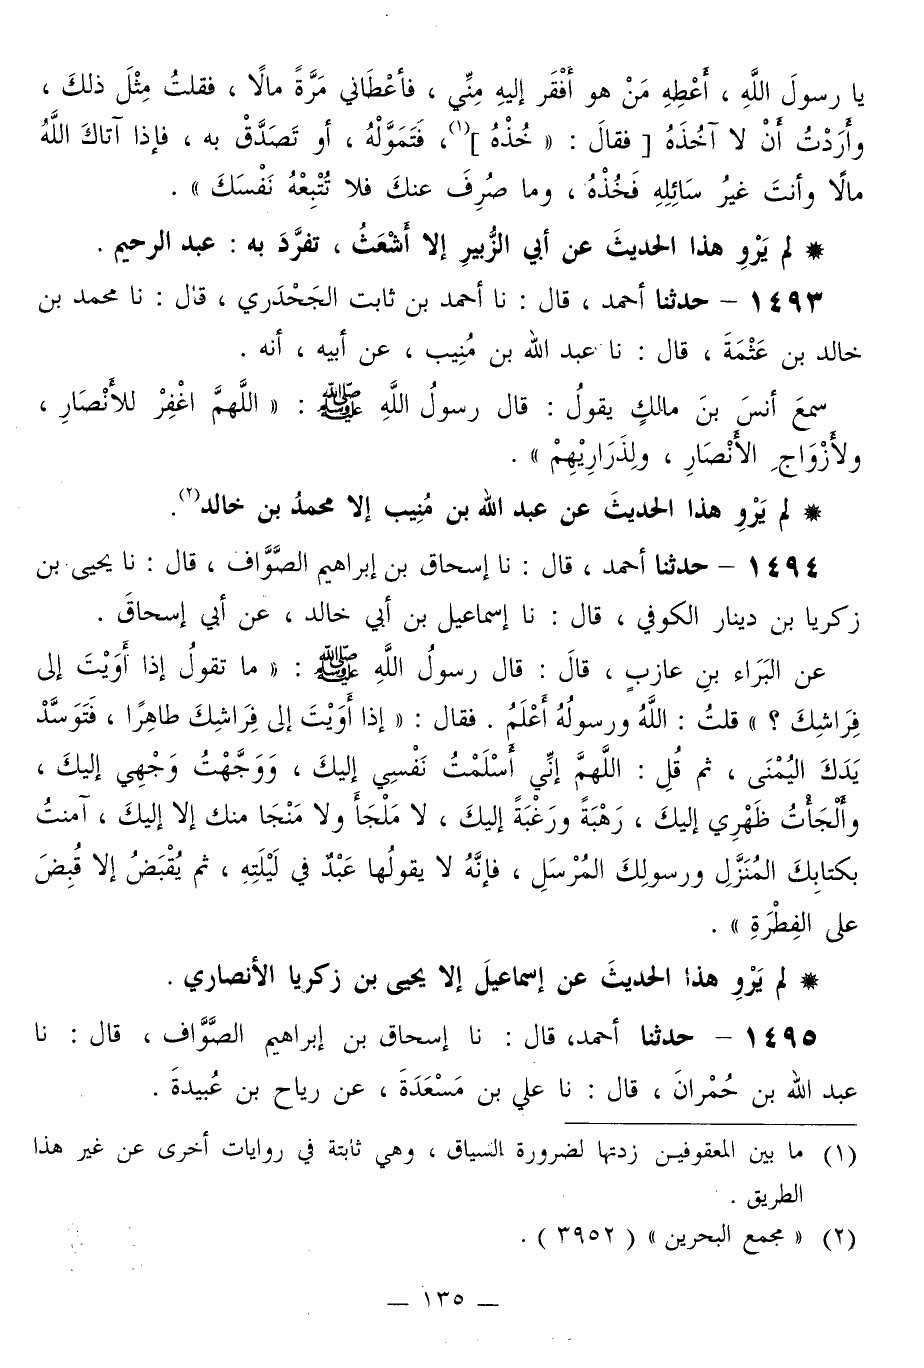 يا رسولَ اللَّهِ ، أَعْطِهِ مَنْ هو أَفْقَر إليهِ مِنِّي ، فأعْطَاني مَرَّةً مالًا ، فقلتُ مِثْلَ ذلكَ ،
وأَرَدْتُ أَنْ لا آخُذَهُ [ فقالَ : « خُذْهُ ](١)، فَتَمَوَّلْهُ ، أو تَصَدَّقْ به ، فإذا آتاكَ اللَّهُ
مالًا وأنتَ غيرُ سَائِلِهِ فَخُذْهُ ، وما صُرِفَ عنكَ فلا تُتْبِعْهُ نَفْسَكَ » .
* لم يَرْوِ هذا الحديثَ عن أبي الزُّبيرِ إلا أَشْعَثُ ، تفرَّدَ به : عبد الرحيم .
١٤٩٣ – حدثنا أحمد ، قال : نا أحمد بن ثابت الجَحْدَري ، قال : نا محمد بن
خالد بن عَثْمَةَ ، قال : نا عبد الله بن مُنِيب ، عن أبيه ، أنه .
سمعَ أنسَ بنَ مالكٍ يقولُ : قال رسولُ اللَّهِ ﷺ : « اللَّهمَّ اغْفِرْ للأَنْصَارِ ،
ولأَزْوَاجِ الأَنْصَارِ ، ولِذَرَارِيْهِمْ » .
* لم يَرْوِ هذا الحديثَ عن عبد الله بن مُنِيب إلا محمدُ بن خالد(٢).
١٤٩٤ – حدثنا أحمد ، قال : نا إسحاق بن إبراهيم الصَّوَّاف ، قال : نا يحيى بن
زكريا بن دينار الكوفي ، قال : نا إسماعيل بن أبي خالد ، عن أبي إسحاقَ .
عن البَرَاء بنِ عازبٍ ، قالَ : قال رسولُ اللَّهِ ﷺ : « ما تقولُ إذا أَوَيْتَ إلى
فِرَاشِكَ ؟ » قلتُ : اللَّهُ ورسولُهُ أَعْلَمُ . فقال : « إذا أَوَيْتَ إلى فِرَاشِكَ طاهِرًا ، فَتَوَسَّدْ
يَدَكَ اليُمْنَى ، ثم قُلِ : اللَّهمَّ إنِّي أَسْلَمْتُ نَفْسِي إليكَ ، وَوَجَّهْتُ وَجْهِي إليكَ ،
وأَلْجَأْتُ ظَهْرِي إليكَ ، رَهْبَةً ورَغْبَةً إليكَ ، لا مَلْجَأَ ولا مَنْجَا منك إلا إليكَ ، آمنتُ
بكتابِكَ المُنَزَّلِ ورسولِكَ المُرْسَلِ ، فإنَّهُ لا يقولُها عَبْدٌ في لَيْلَتِهِ ، ثم يُقْبَضُ إلا قُبِضَ
على الفِطْرَةِ » .
* لم يَرْوِ هذا الحديثَ عن إسماعيلَ إلا يحيى بن زكريا الأنصاري .
١٤٩٥ – حدثنا أحمد، قال : نا إسحاق بن إبراهيم الصَّوَّاف ، قال : نا
عبد الله بن حُمْرانَ ، قال : نا علي بن مَسْعَدَةَ ، عن رياح بن عُبيدةَ .
(١) ما بين المعقوفين زدتها لضرورة السياق ، وهي ثابتة في روايات أخرى عن غير هذا
الطريق .
(٢) « مجمع البحرين » ( ٣٩٥٢ ) .
— ١٣٥ —